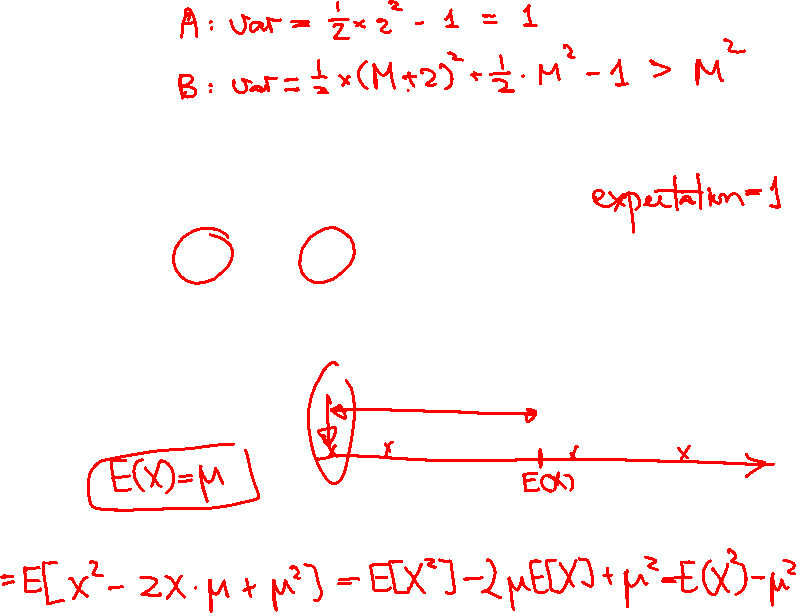 A: var = 1/2 × 2² - 1 = 1
B: var = 1/2 × (M+2)² + 1/2 · M² - 1 > M²
expectation = 1
E(X)=μ
E(X)
= E[X² - 2X·μ + μ²] = E[X²] - 2μE[X] + μ² = E(X²) - μ²